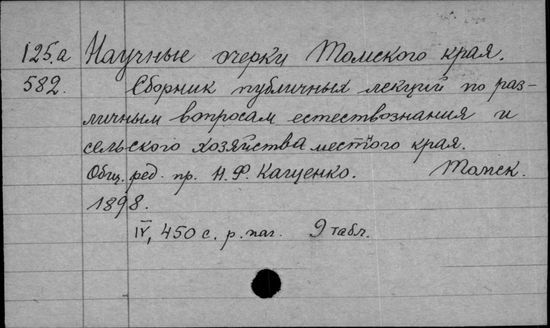 125.а Научные очерки Томского края.
582. Сборник публичных лекций по раз-
личным вопросам естествознания и
сельского хозяйства местного края.
Общ. ред. пр. Н. Ф. Кащенко. Томск.
1898.
IV, 450 с. р. паг. 9 табл.